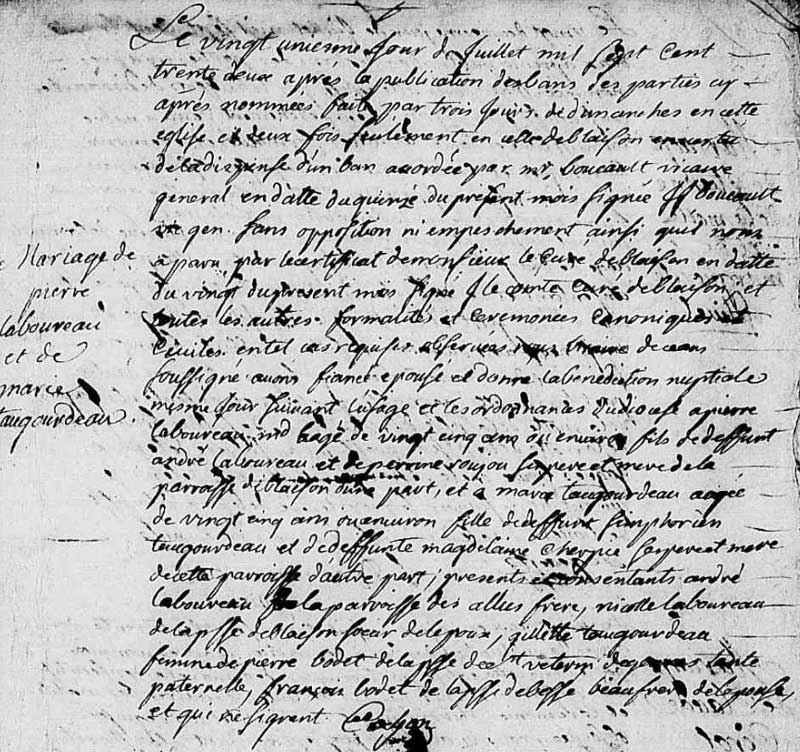 Le vingt uniesme Jour de Juillet mil sept cent
trente deux après la publication des bans des parties cy
après nommées faite par trois Jours de dimanches en cette
eglise et deux fois seulement en celle de blaison en vertu
de la dispense d'un ban acordée par mr. boucault vicaire
general en datte du quinze du présent mois signée boucault
vic gen. sans opposition ni empeschement ainsi quil nous
a paru par le certificat de monsieur le Curé de blaison en datte
du vingt du present mois signé J le comte Curé de blaison, et
toutes les autres formalités et Ceremonces Canoniques et
Civiles en tel cas requises observées nous vicaire de ceans
soussigné avons fiancé epousé et donné la benediction nuptiale
mesme Jour suivant lusage et les ordonnances du diocese a pierre
laboureau agé de vingt cinq ans ou environ fils de deffunt
andré laboureau et de perrine soujou ses pere et mere de la
parroisse de blaison d'une part, et a marie taugourdeau aagée
de vingt cinq ans ou environ fille de deffunt simphorien
taugourdeau et de deffunte magdelaine ses pere et mere
de cette parroisse d'autre part, presents et consentants andré
laboureau de la parroisse des allus frere, nicolle laboureau
de la psse de blaison soeur de lepoux, gillette taugourdeau
femme de pierre bodet de la psse de tante
paternelle, françois bodet de la psse de besse beaufrere de lepouse,
et qui ne signent.
Mariage de
pierre
laboureau
et de
marie
taugourdeau